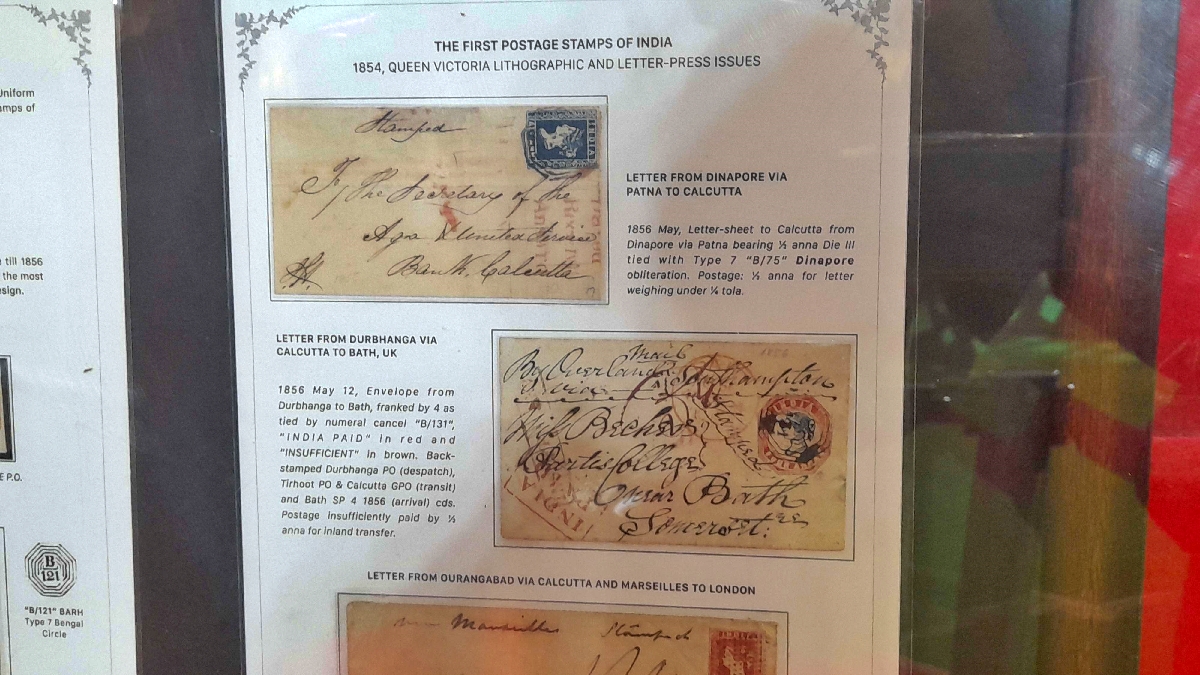 Uniform
amps of
till 1856
the most
esign.
E P.O.
B
121
"B/121" BARH
Type 7 Bengal
Circle
THE FIRST POSTAGE STAMPS OF INDIA
1854, QUEEN VICTORIA LITHOGRAPHIC AND LETTER-PRESS ISSUES
Stamped
INDIA
To, The Secretary of the
Agra & United Service
Bank, Calcutta
LETTER FROM DINAPORE VIA
PATNA TO CALCUTTA
1856 May, Letter-sheet to Calcutta from
Dinapore via Patna bearing ½ anna Die III
tied with Type 7 "B/75" Dinapore
obliteration. Postage: ½ anna for letter
weighing under ¼ tola.
LETTER FROM DURBHANGA VIA
CALCUTTA TO BATH, UK
1856 May 12, Envelope from
Durbhanga to Bath, franked by 4 as
tied by numeral cancel "B/131",
"INDIA PAID" in red and
"INSUFFICIENT" in brown. Back-
stamped Durbhanga PO (despatch),
Tirhoot PO & Calcutta GPO (transit)
and Bath SP 4 1856 (arrival) cds.
Postage insufficiently paid by ½
anna for inland transfer.
By Overland Mail
via Southampton
Stamped
Miss Becher
College
near Bath
Somerset
INDIA
LETTER FROM OURANGABAD VIA CALCUTTA AND MARSEILLES TO LONDON
via Marseilles Stamped